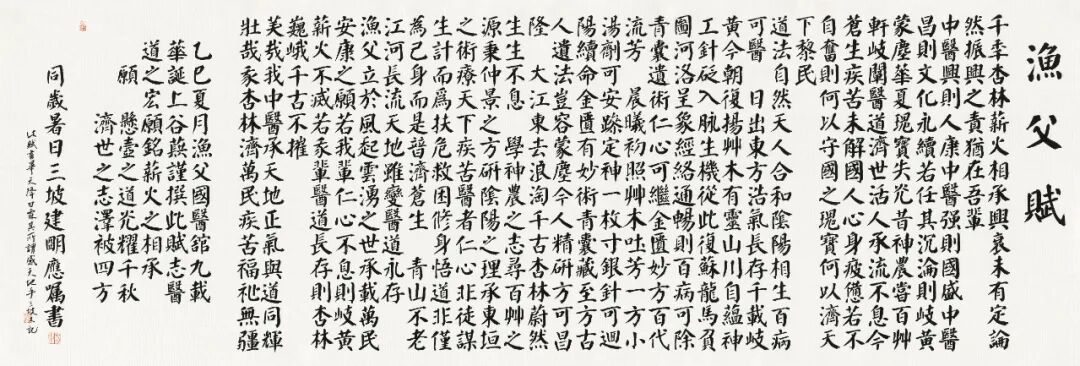 漁父賦
千季杏林薪火相承興衰未有定論
然振興之責猶在吾輩
中醫興則人康中醫強則國盛中醫
昌則文化永續若任其沉淪則岐黃
蒙塵華夏瑰寶失光昔神農嘗百艸
軒岐闡醫道濟世活人承流不息今
蒼生疾苦未解國人心身疲憊若不
自奮則何以守國之瑰寶何以濟天
下黎民
道法自然天人合和陰陽相生百病
可醫 日出東方浩氣長存千載岐
黃今朝復揚艸木有靈山川自蘊神
工針砭入肌生機從此復蘇龍馬負
圖河洛呈象經絡通暢則百病可除
青囊遺術仁心可繼金匱妙方百代
流芳 晨曦初照艸木吐芳一方小
湯劑可安躁定神一枚寸銀針可迴
陽續命金匱有妙術青囊藏至方古
人遺法豈容蒙塵今人精研方可昌
隆 大江東去浪淘千古杏林蔚然
生生不息 學神農之志尋百艸之
源秉仲景之方研陰陽之理承東垣
之術療天下疾苦醫者仁心非徒謀
生計而爲扶危救困修身悟道非僅
為己身而是普濟蒼生 青山不老
江河長流天地雖變醫道永存
漁父立於風起雲湧之世承載萬民
安康之願若我輩仁心不息則岐黃
薪火不滅若我輩醫道長存則杏林
巍峨千古不摧
美哉我中醫承天地正氣與道同輝
壯哉我杏林濟萬民疾苦福祉無疆
乙巳夏月漁父國醫館九載
華誕上谷燕謹撰此賦志醫
道之宏願銘薪火之相承
願 懸壺之道光耀千秋
濟世之志澤被四方
同歲暑日三坡建明應囑書
此賦書畢天降甘霖